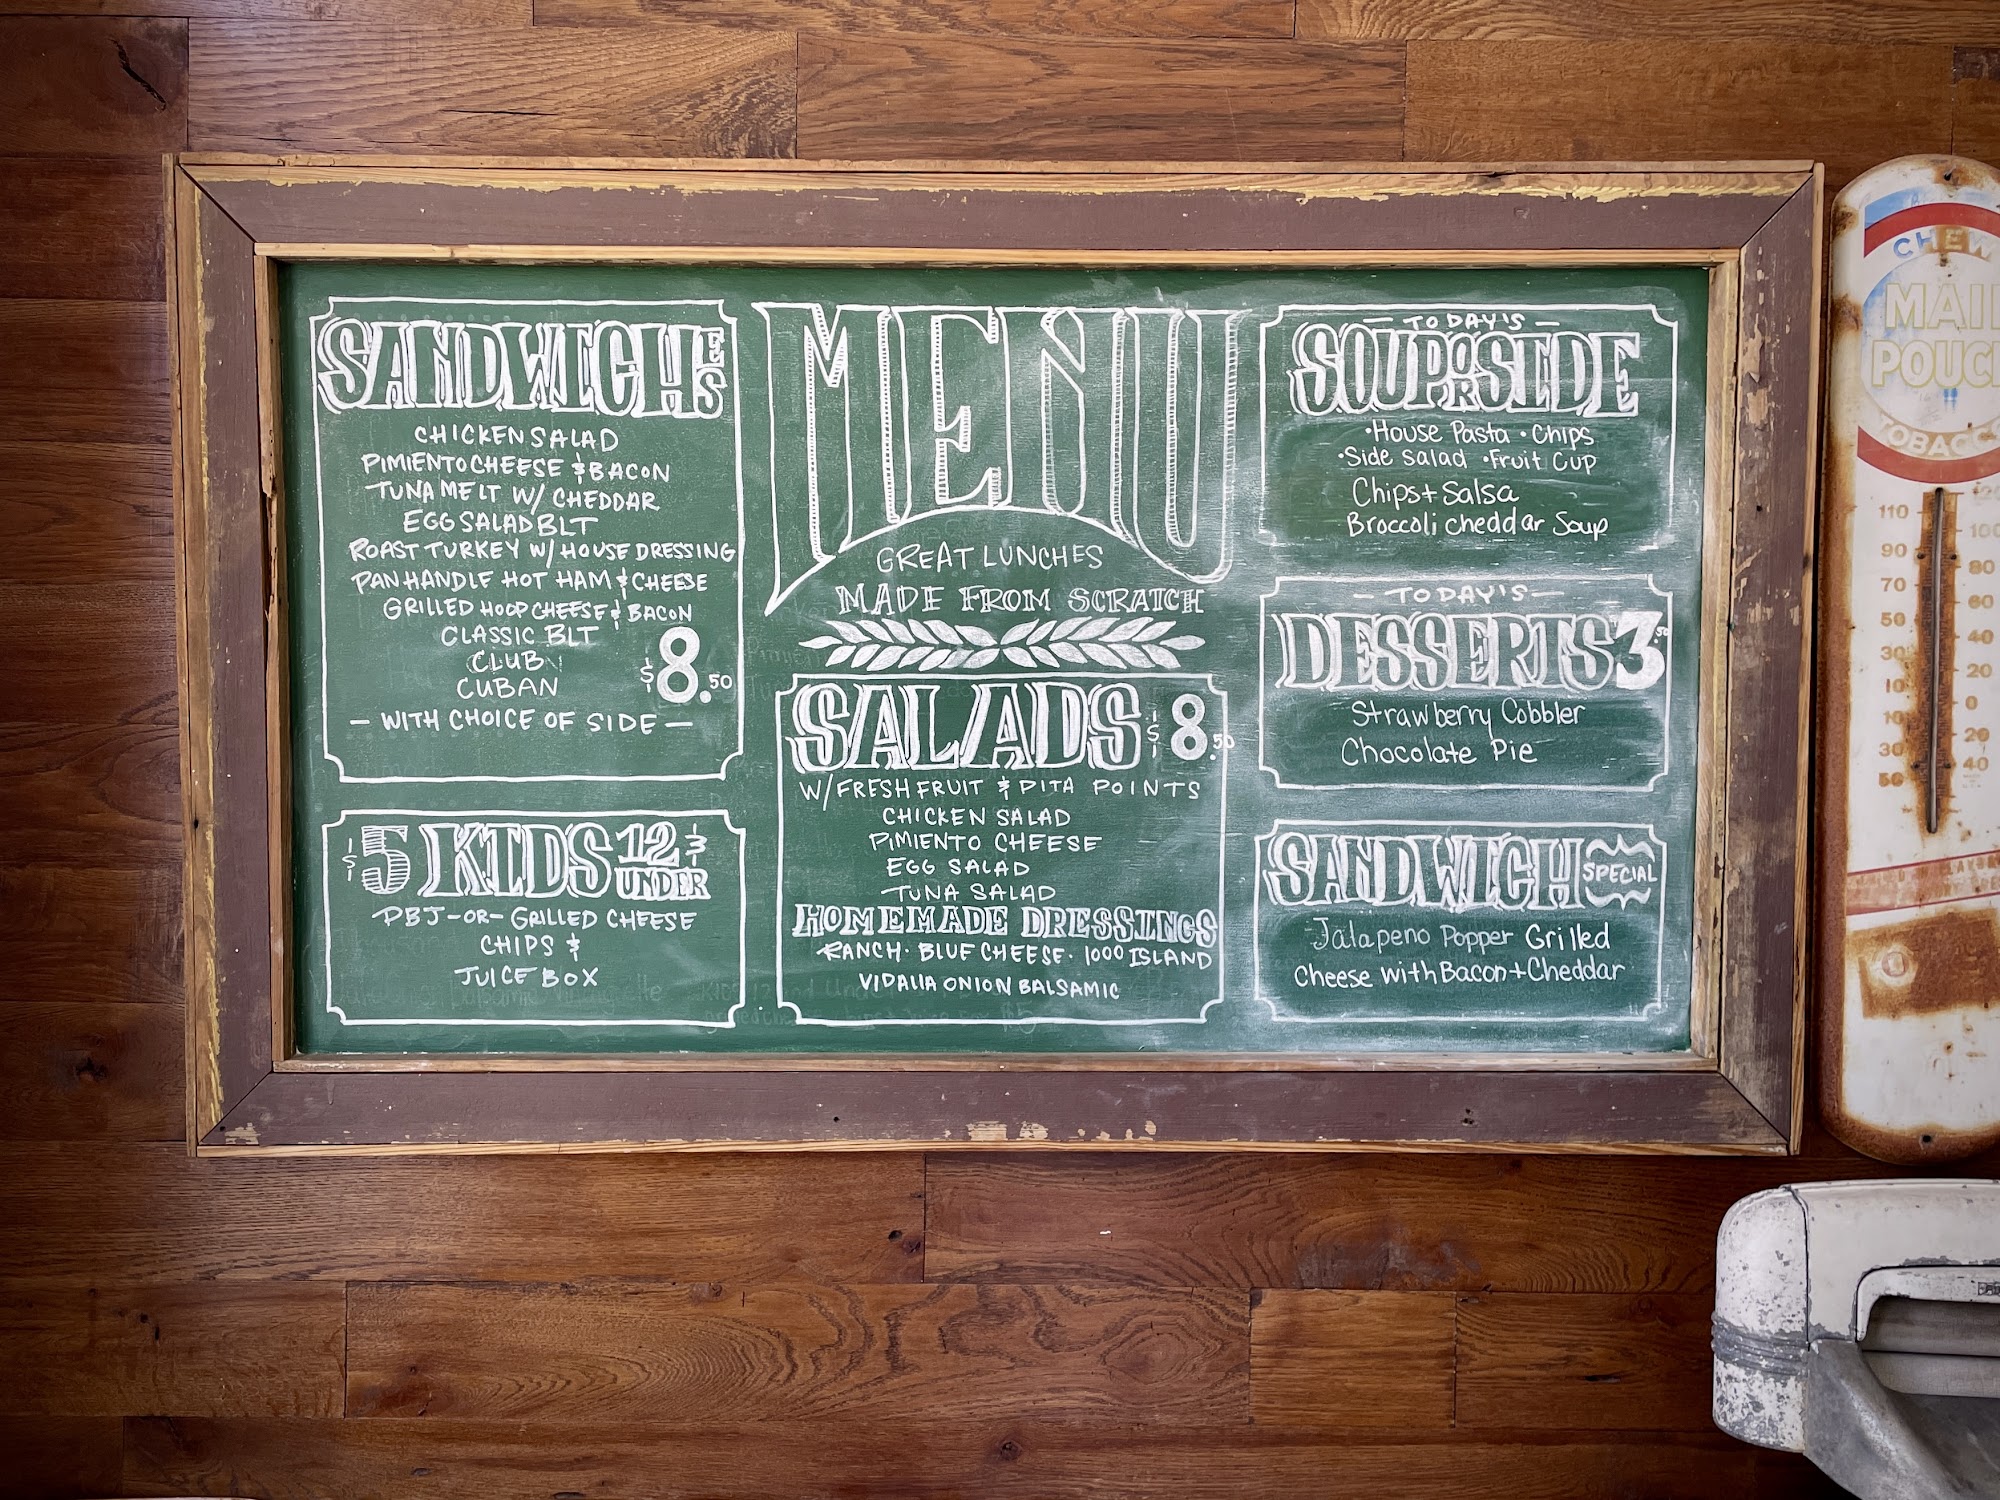 SANDWICHES
CHICKEN SALAD
PIMIENTO CHEESE & BACON
TUNA MELT W/ CHEDDAR
EGG SALAD BLT
ROAST TURKEY W/ HOUSE DRESSING
PANHANDLE HOT HAM & CHEESE
GRILLED HOOP CHEESE & BACON
CLASSIC BLT
CLUB
CUBAN
$8.50
— WITH CHOICE OF SIDE —
$5 KIDS 12 & UNDER
PBJ -OR- GRILLED CHEESE
CHIPS &
JUICE BOX
MENU
GREAT LUNCHES
MADE FROM SCRATCH
SALADS $8.50
W/ FRESH FRUIT & PITA POINTS
CHICKEN SALAD
PIMIENTO CHEESE
EGG SALAD
TUNA SALAD
HOMEMADE DRESSINGS
RANCH · BLUE CHEESE · 1000 ISLAND
VIDALIA ONION BALSAMIC
— TODAY'S —
SOUP OR SIDE
·House Pasta ·Chips
·Side Salad ·Fruit Cup
Chips + Salsa
Broccoli Cheddar Soup
— TODAY'S —
DESSERTS 3.50
Strawberry Cobbler
Chocolate Pie
SANDWICH SPECIAL
Jalapeno Popper Grilled
Cheese with Bacon + Cheddar
CHEW
MAIL
POUCH
TOBACCO
110 100
90 80
70 60
50 40
30 20
10 0
10 20
30 40
50